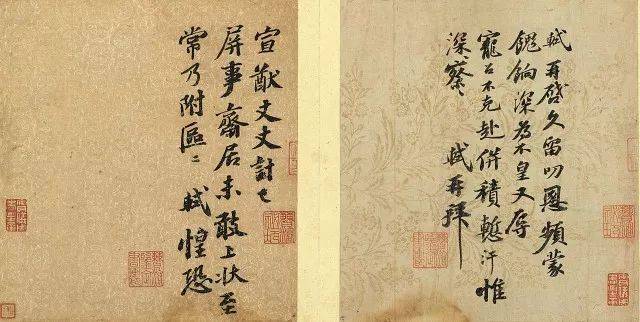 軾再啓久留叨恩頻蒙
餽餉深為不皇又辱
寵召不克赴併積慙汗惟
深察〻 軾再拜
宣猷丈丈計已
屏事齋居未敢上狀至
常乃附區〻 軾惶恐